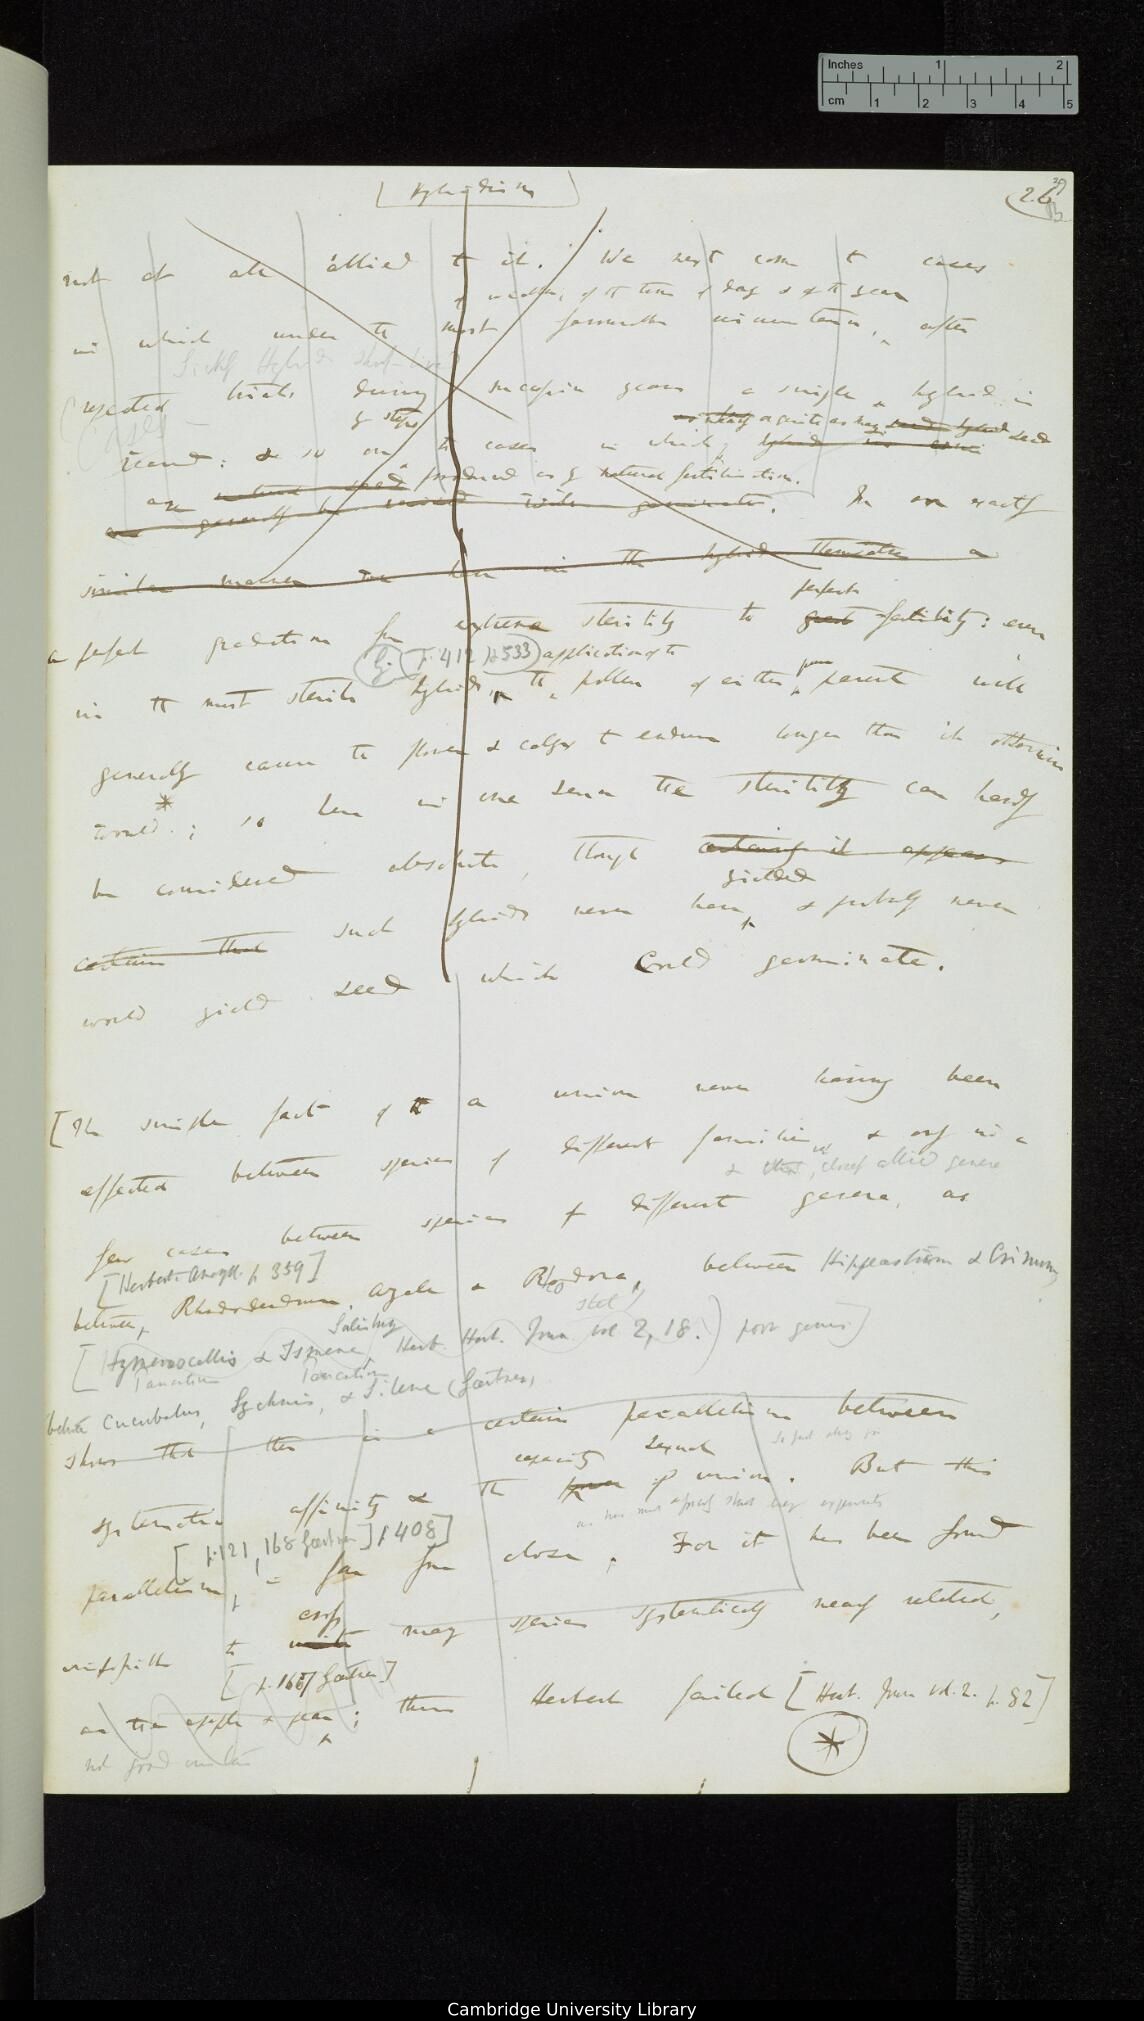 Inches 1 2
cm 1 2 3 4 5
Hybridism
26
not at all allied to it. We next come to cases
of weather, of the time of day & of the year
in which under the most favourable circumstances, after
Sickly Hybrids short-lived
repeated trials during successive years a single hybrid is
Cases
by steps
reared: & so on to cases in which
are produced as by natural fertilisation.
In an exactly
similar manner we have in the hybrids themselves a
perfect
a perfect gradation from extreme sterility to great fertility: even
G. p. 412 & 533 application of the
in the most sterile hybrids, the pollen of either pure parent will
generally cause the flower & calyx to endure longer than it otherwise
would; so here in one sense the sterility can hardly
be considered absolute, though certainly it appears
yielded
certain that such hybrids never have, & probably never
would yield seed which could germinate.
[The simple fact of the a union never having been
effected between species of different families, & only in a
& closely allied genera
few cases between species of different genera, as
[Herbert Amaryll. p 359]
between Rhododendrum, Azalea & Rhodora, between Hippeastrum & Crinum,
stet
Salisbury
[Hymenocallis & Ismene, Herb. Hort. Journ vol 2, 18.) poor genus]
Pancratium Pancratium
between Cucubalus, Lychnis, & Silene (Gærtner,
shows that there is a certain parallelism between
capacity sexual
systematic affinity & the power of union. But this
[p. 121, 168 Gærtner] p 408]
parallelism, is far from close. For it has been found
cross
impossible to unite many species systematically nearly related,
[p. 167 Gærtner]
as the apple & pear; thus Herbert failed [Hort. Journ vol. 2. p. 82]
not good
Cambridge University Library